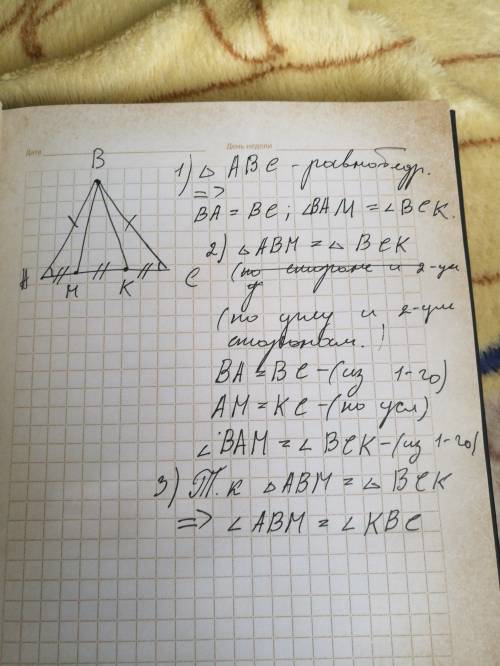 Дата
День недели
B
A
M
K
C
1) △ ABC - равнобедр.
=>
BA = BC; ∠BAM = ∠BCK.
2) △ABM = △ BCK
(по стороне и 2-ум
у
(по углу и 2-ум
сторонам.)
BA = BC - (из 1-го)
AM = KC - (по усл)
∠BAM = ∠ BCK - (из 1-го)
3) Т.к △ABM = △ BCK
=> ∠ ABM = ∠ KBC